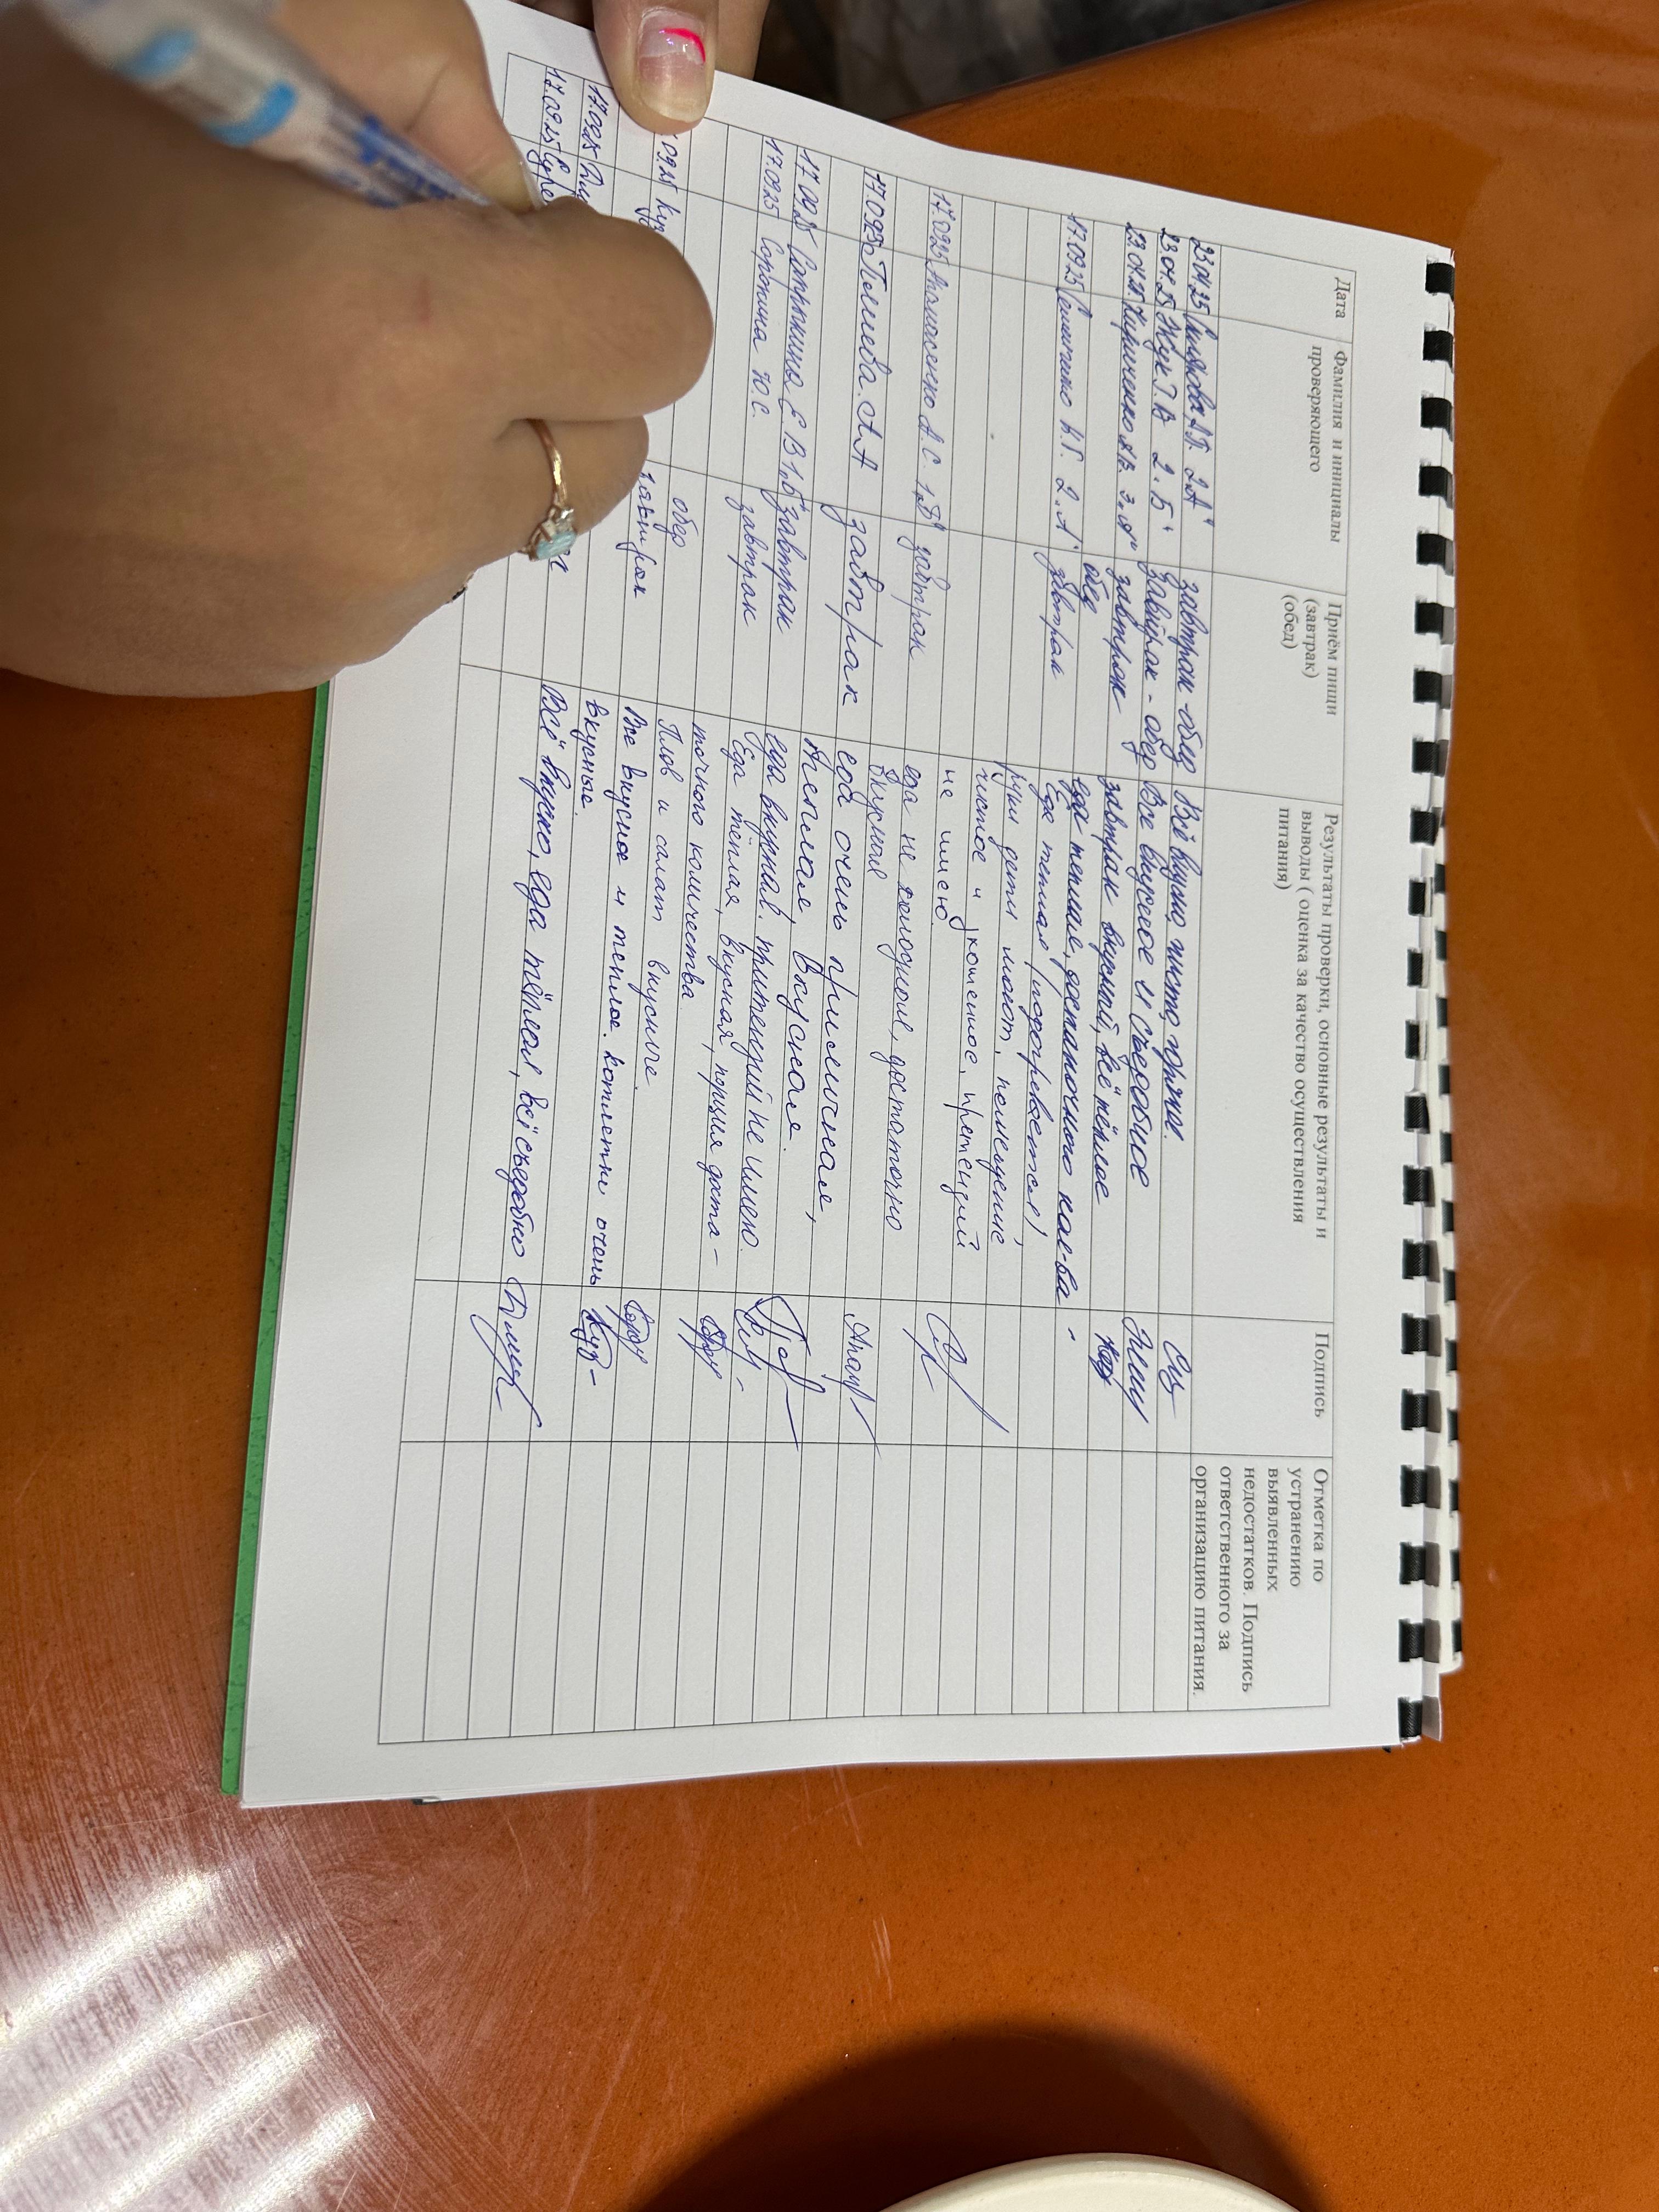 Дата Фамилия и инициалы проверяющего Приём пищи (завтрак) (обед) Результаты проверки, основные результаты и выводы ( оценка за качество осуществления питания) Подпись Отметка по устранению выявленных недостатков. Подпись ответственного за организацию питания.
23.04.25 2 "А" завтрак - обед Всё вкусно, чисто,
23.04.25 Жук Т.В 2 "Б" завтрак - обед Все вкусное и съедобное
23.04.25 Кириченко Я.В. 3 "А" завтрак завтрак вкусный, всё тёплое
обед еда теплая, достаточного кол-ва
17.09.25 К.Г. 2 "А" завтрак Еда теплая (подогревается),
руки дети моют, помещение
чистое и ухоженное, претензий
не имею.
17.09.25 А.С. 1 "В" завтрак еда не холодная, достаточно
вкусная
17.09.25 А.А завтрак еда очень приличная,
теплая, вкусная.
17.09.25 Е В 1 "Б" завтрак еда вкусная. притензий не имею.
17.09.25 Сорокина Ю.С. завтрак Еда тёплая, вкусная, порция доста-
точного количества
обед Плов и салат вкусные.
09.25 завтрак Все вкусное и теплое. Котлетки очень
17.09.25 вкусные.
17.09.25 Всё вкусно, еда тёплая, всё съедобно